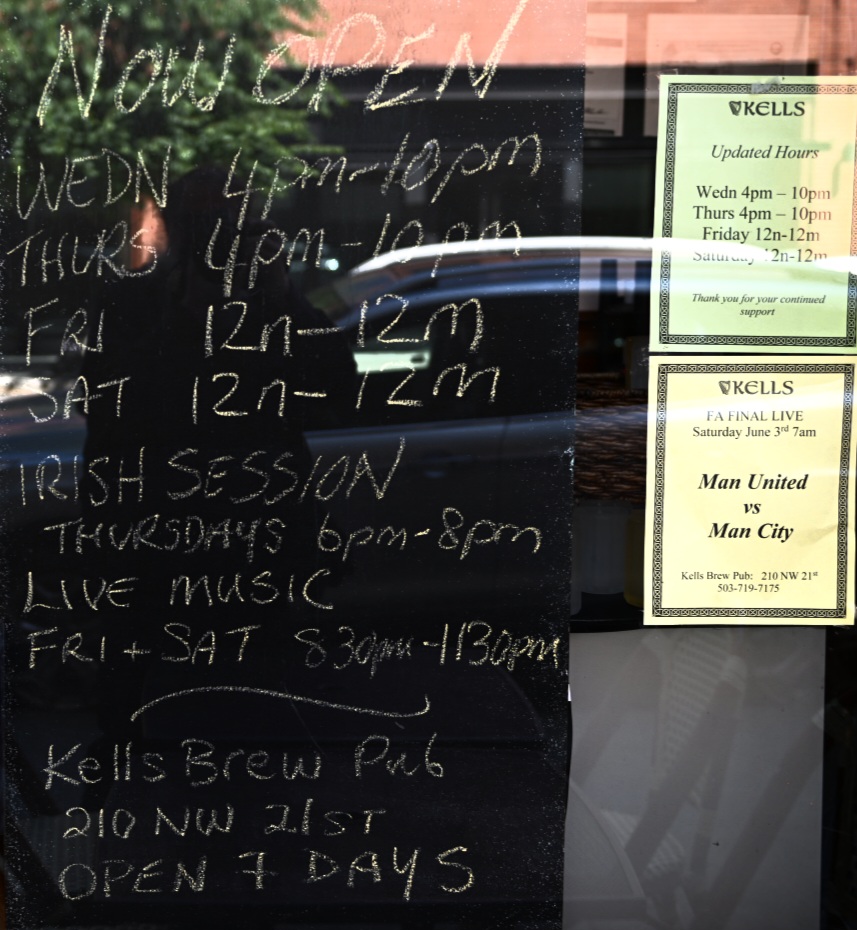 NOW OPEN
WEDN 4pm-10pm
THURS 4pm-10pm
FRI 12n-12m
SAT 12n-12m
IRISH SESSION
THURSDAYS 6pm-8pm
LIVE MUSIC
FRI + SAT 830pm-1130pm
Kells Brew Pub
210 NW 21ST
OPEN 7 DAYS
KELLS
Updated Hours
Wedn 4pm – 10pm
Thurs 4pm – 10pm
Friday 12n-12m
Saturday 12n-12m
Thank you for your continued
support
KELLS
FA FINAL LIVE
Saturday June 3rd 7am
Man United
vs
Man City
Kells Brew Pub: 210 NW 21st
503-719-7175